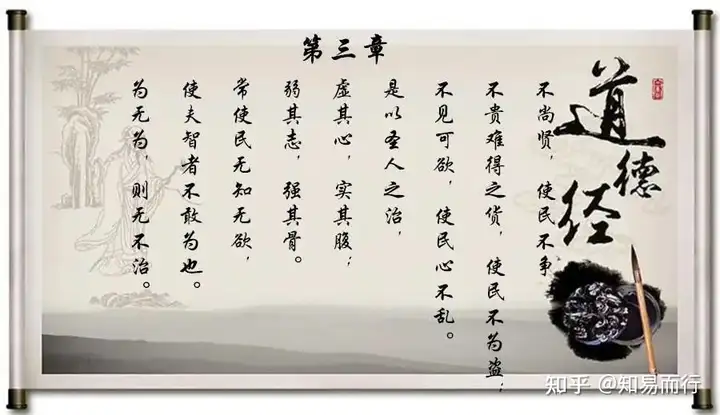 第三章
道德经
不尚贤，使民不争
不贵难得之货，使民不为盗；
不见可欲，使民心不乱。
是以圣人之治，
虚其心，实其腹；
弱其志，强其骨。
常使民无知无欲，
使夫智者不敢为也。
为无为，则无不治。
知乎 @知易而行